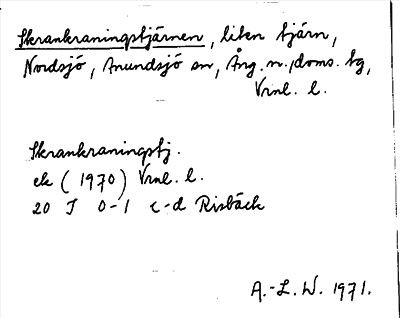 Skrankraningstjärnen, liten tjärn,
Nordsjö, Anundsjö sn, Ång. n. doms. tg,
Vrnl. l.
Skrankraningstj.
ek (1970) Vrnl. l.
20 J 0-1 c-d Risbäck
A.-L. W. 1971.